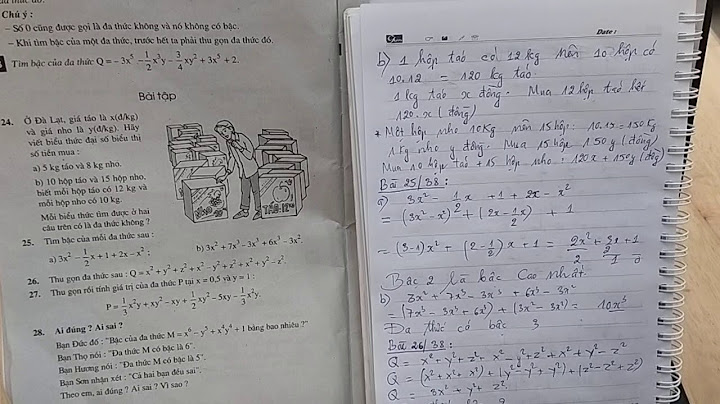 Chú ý :
– Số 0 cũng được gọi là đa thức không và nó không có bậc.
– Khi tìm bậc của một đa thức, trước hết ta phải thu gọn đa thức đó.
Tìm bậc của đa thức Q = –3x⁵ – 1/2 x³y – 3/4 xy² + 3x⁵ + 2.
Bài tập
24. Ở Đà Lạt, giá táo là x(đ/kg)
và giá nho là y(đ/kg). Hãy
viết biểu thức đại số biểu thị
số tiền mua :
a) 5 kg táo và 8 kg nho.
b) 10 hộp táo và 15 hộp nho,
biết mỗi hộp táo có 12 kg và
mỗi hộp nho có 10 kg.
Mỗi biểu thức tìm được ở hai
câu trên có là đa thức không ?
25. Tìm bậc của mỗi đa thức sau :
a) 3x² – 1/2 x + 1 + 2x – x² ;
b) 3x² + 7x³ – 3x³ + 6x³ – 3x².
26. Thu gọn đa thức sau : Q = x² + y² + z² + x² – y² + z² + x² + y² – z².
27. Thu gọn rồi tính giá trị của đa thức P tại x = 0,5 và y = 1 :
P = 1/3 x²y + xy² – xy + 1/2 xy² – 5xy – 1/3 x²y.
28. Ai đúng ? Ai sai ?
Bạn Đức đố : "Bậc của đa thức M = x⁶ – y⁵ + x⁴y⁴ + 1 bằng bao nhiêu ?"
Bạn Thọ nói : "Đa thức M có bậc là 6".
Bạn Hương nói : "Đa thức M có bậc là 5".
Bạn Sơn nhận xét : "Cả hai bạn đều sai".
Theo em, ai đúng ? Ai sai ? Vì sao ?
Date :
b) 1 hộp táo có 12 kg nên 10 hộp có
10.12 = 120 kg táo.
1 kg táo x đồng. Mua 12 hộp táo hết
120.x (đồng)
* Một hộp nho 10kg nên 15 hộp: 10.15 = 150 kg
1 kg nho y đồng. Mua 15 hộp 150y (đồng)
Mua 10 hộp táo + 15 hộp nho : 120x + 150y (đồng)
Bài 25/38 :
a) 3x² - 1/2 x + 1 + 2x - x²
= (3x² - x²) + (2x - 1/2 x) + 1
= (3-1)x² + (2 - 1/2)x + 1 = 2x² + 3/2 x + 1
2 1 0
Bậc 2 là bậc cao nhất
b) 3x² + 7x³ - 3x³ + 6x³ - 3x²
= (7x³ - 3x³ + 6x³) + (3x² - 3x²) = 10x³
Đa thức có bậc 3
Bài 26/38 :
Q = x² + y² + z² + x² - y² + z² + x² + y² - z²
Q = (x² + x² + x²) + (y² - y² + y²) + (z² - z² + z²)
Q = 3x² + y² + z²